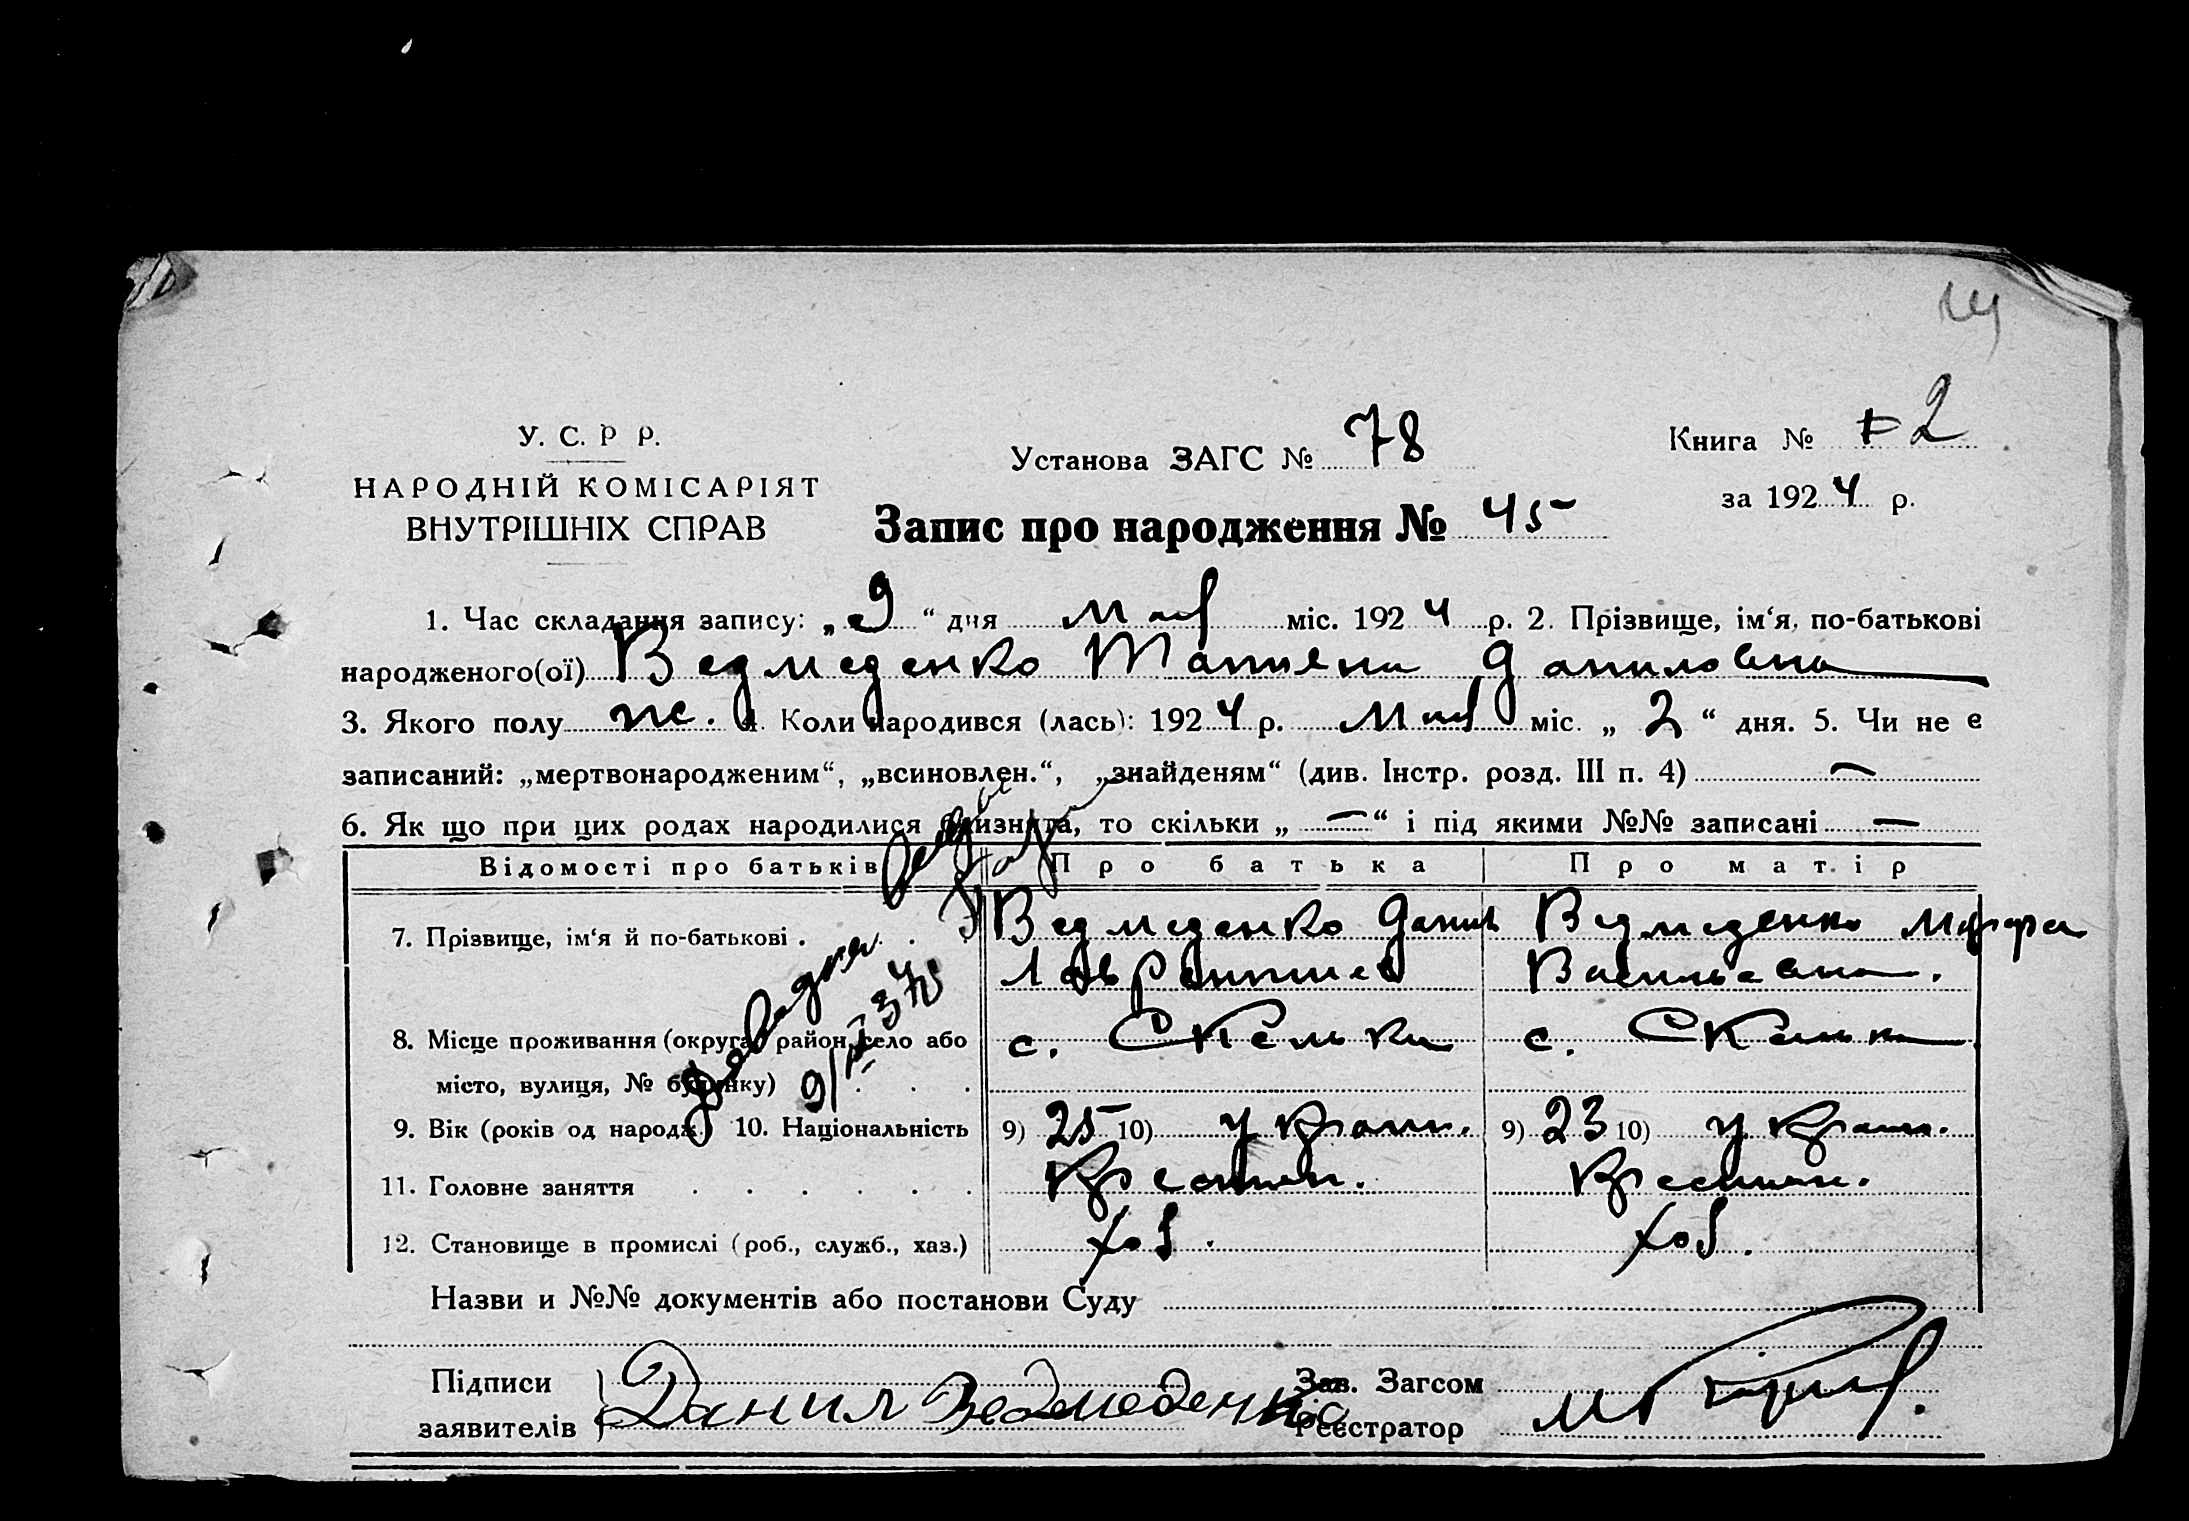 14
У. С. Р Р.
НАРОДНІЙ КОМІСАРІЯТ
ВНУТРІШНІХ СПРАВ
Установа ЗАГС № 78
Книга № 2
за 1924 р.
Запис про народження № 45
1. Час складання запису: „ 9 “ дня мая міс. 1924 р. 2. Прізвище, ім‘я, по-батькові
народженого(ої) Ведмеденко Татяна Даниловна
3. Якого полу ж. 4. Коли народився (лась): 1924 р. мая міс. „ 2 “ дня. 5. Чи не є
записаний: „мертвонародженим“, „всиновлен.“, „знайденям“ (див. Інстр. розд. III п. 4) —
6. Як що при цих родах народилися близнята, то скільки „ — “ і під якими №№ записані —
Відомості про батьків Про батька Про матір
7. Прізвище, ім‘я й по-батькові . . . Ведмеденко Данил Ведмеденко Марфа
Васильевна.
8. Місце проживання (округа, район, село або с. Скельки с. Скельки
місто, вулиця, № будинку) . . .
9. Вік (років од народж.) 10. Національність 9) 25 10) Украин. 9) 23 10) Украин.
11. Головне заняття . . . . . . Крестян. Крестян.
12. Становище в промислі (роб., служб., хаз.) хоз. хоз.
Назви и №№ документів або постанови Суду
Підписи Зав. Загсом
заявителів Данил Ведмеденко Реєстратор